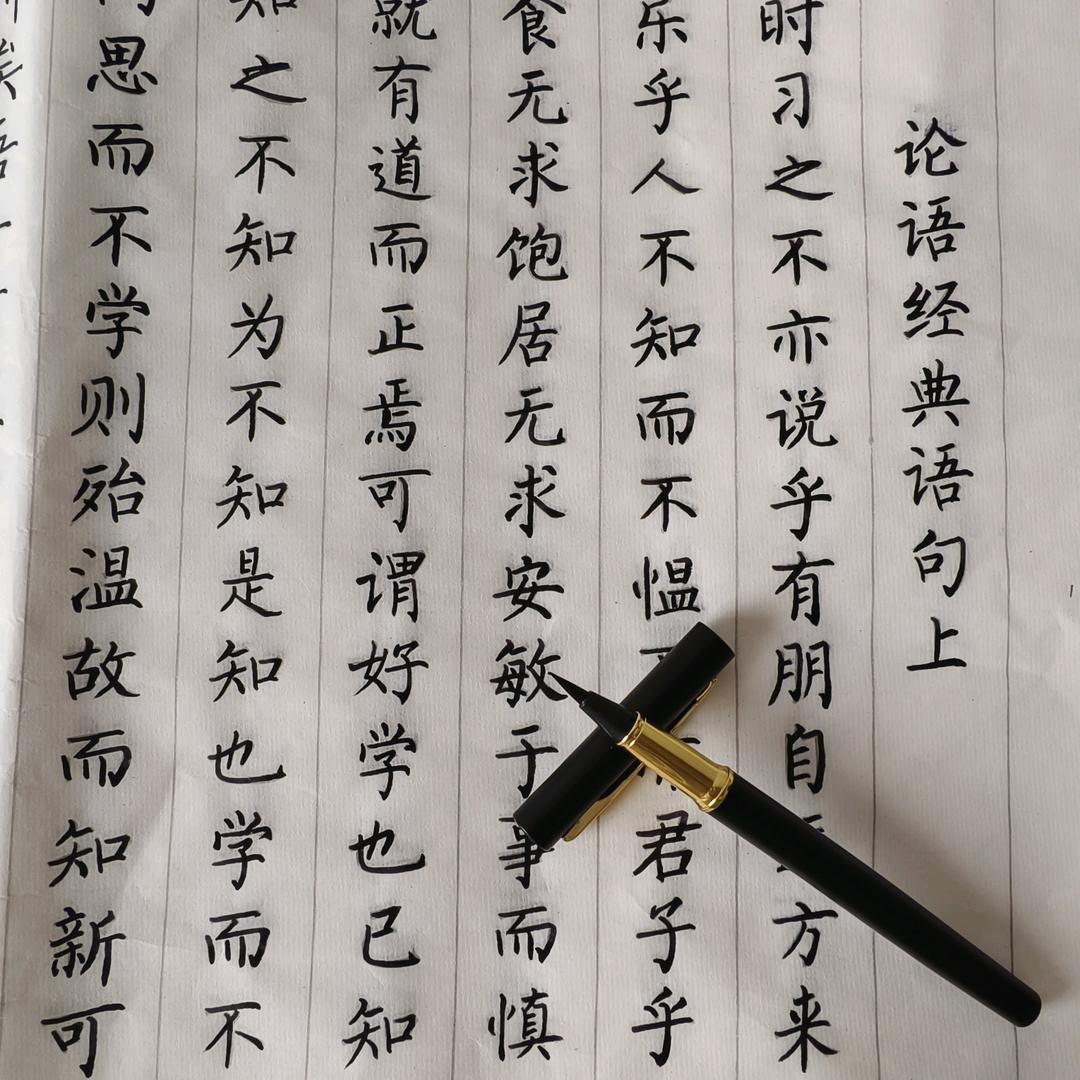 论语经典语句上
时习之不亦说乎有朋自方来
乐乎人不知而不愠君子乎
食无求饱居无求安敏于事而慎
就有道而正焉可谓好学也已知
知之不知为不知是知也学而不
思而不学则殆温故而知新可